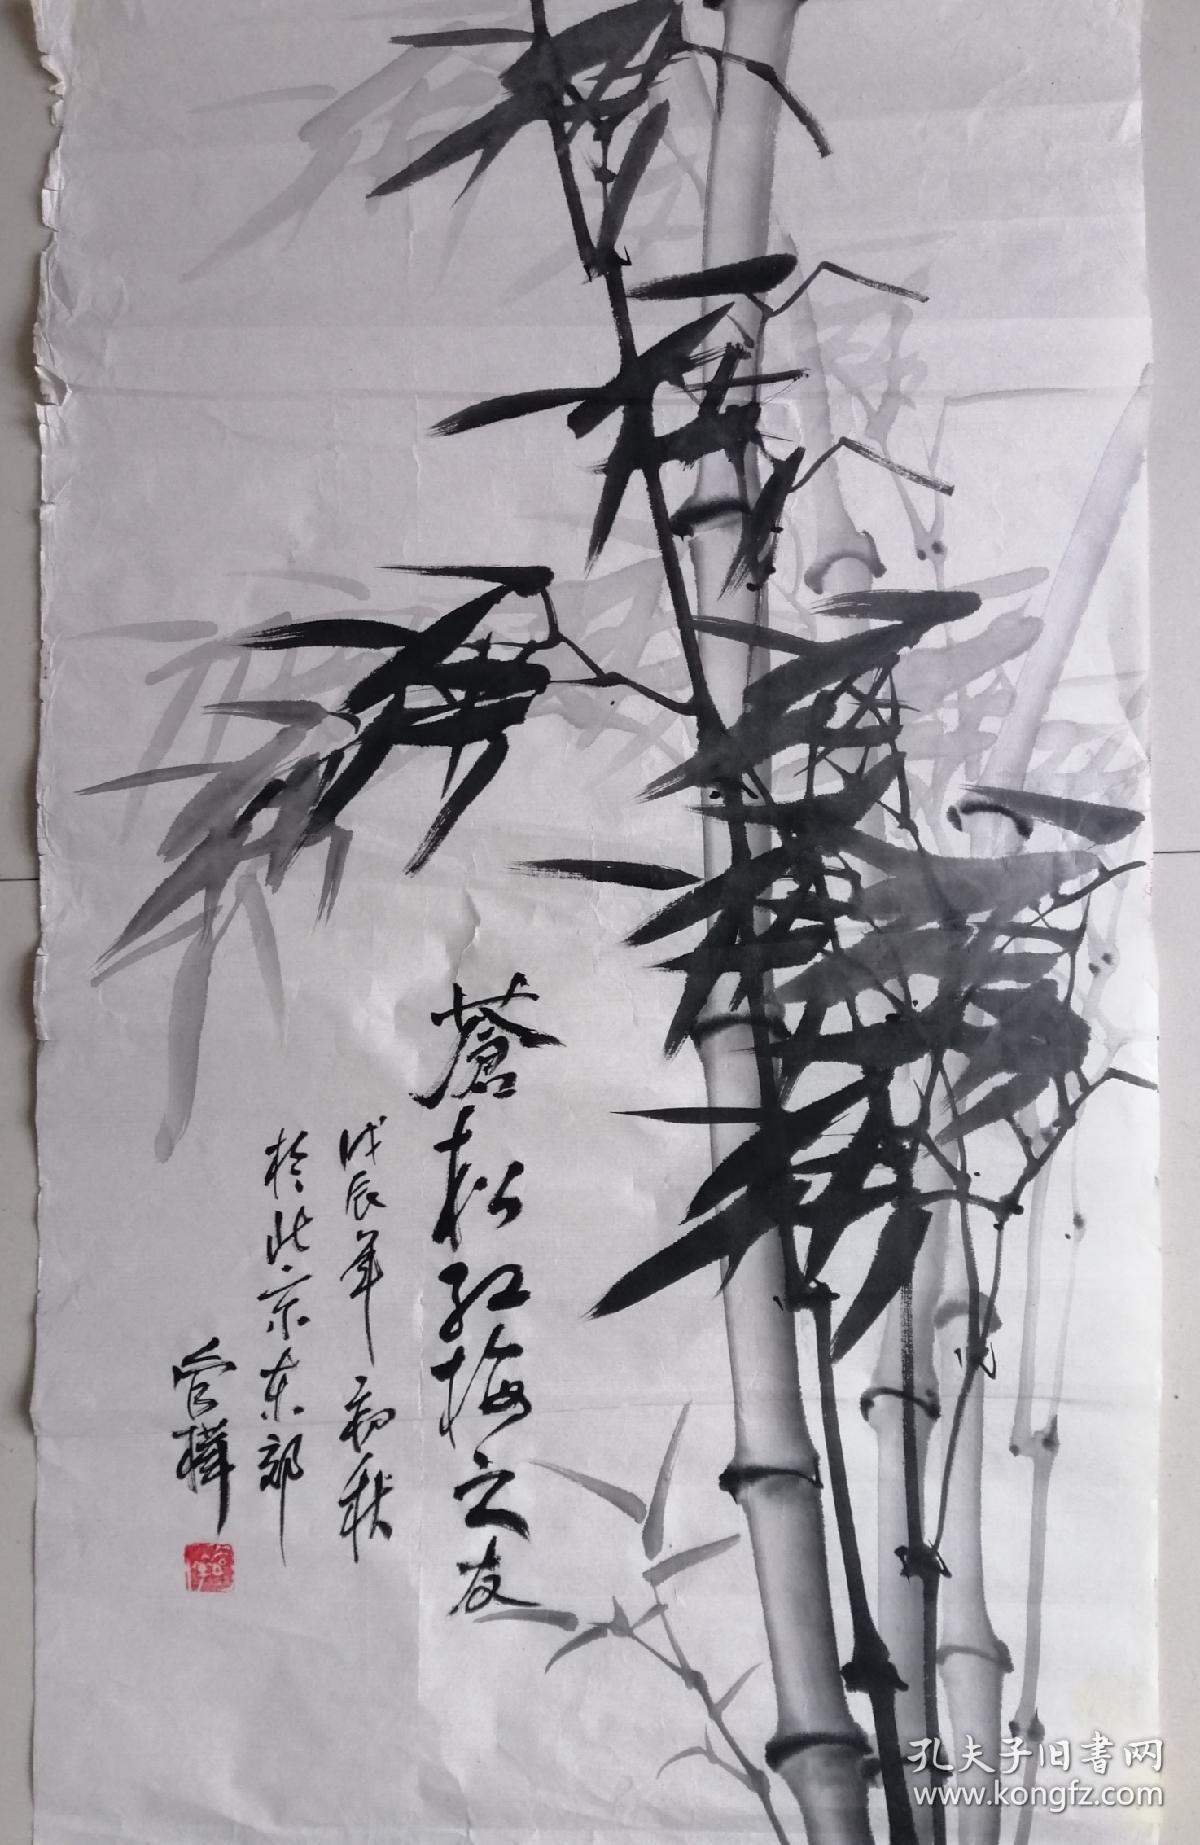 蒼松红梅之友
戊辰年初秋
於北京东部
管桦
孔夫子旧書网
www.kongfz.com